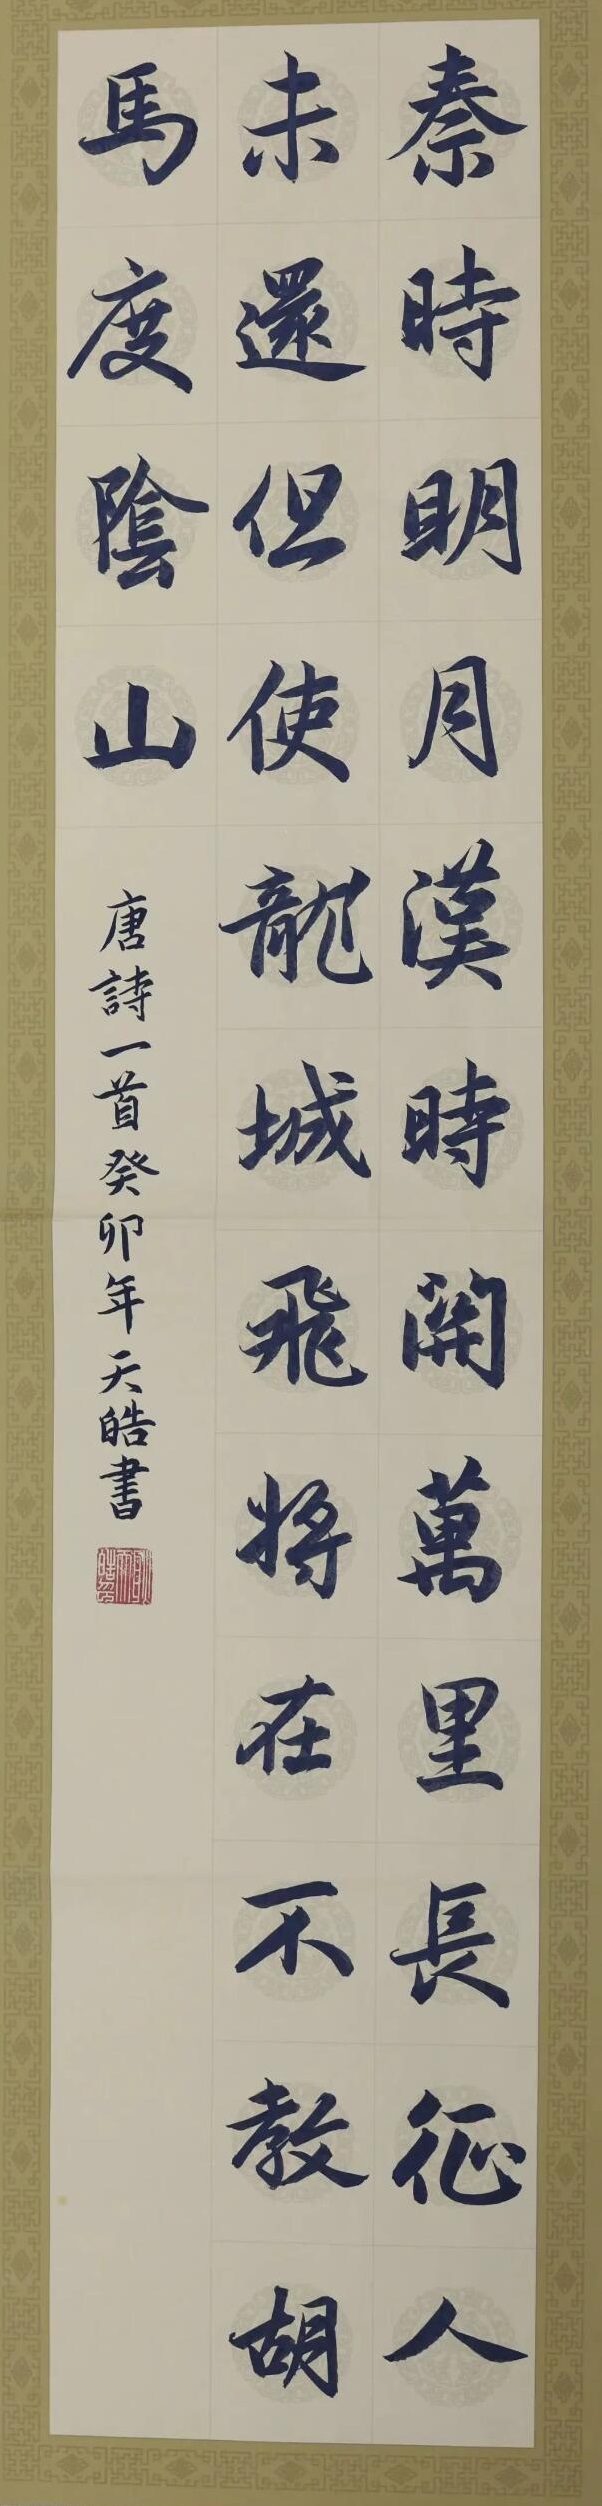 秦時明月漢時關萬里長征人
未還但使龍城飛將在不教胡
馬度陰山
唐詩一首癸卯年天皓書